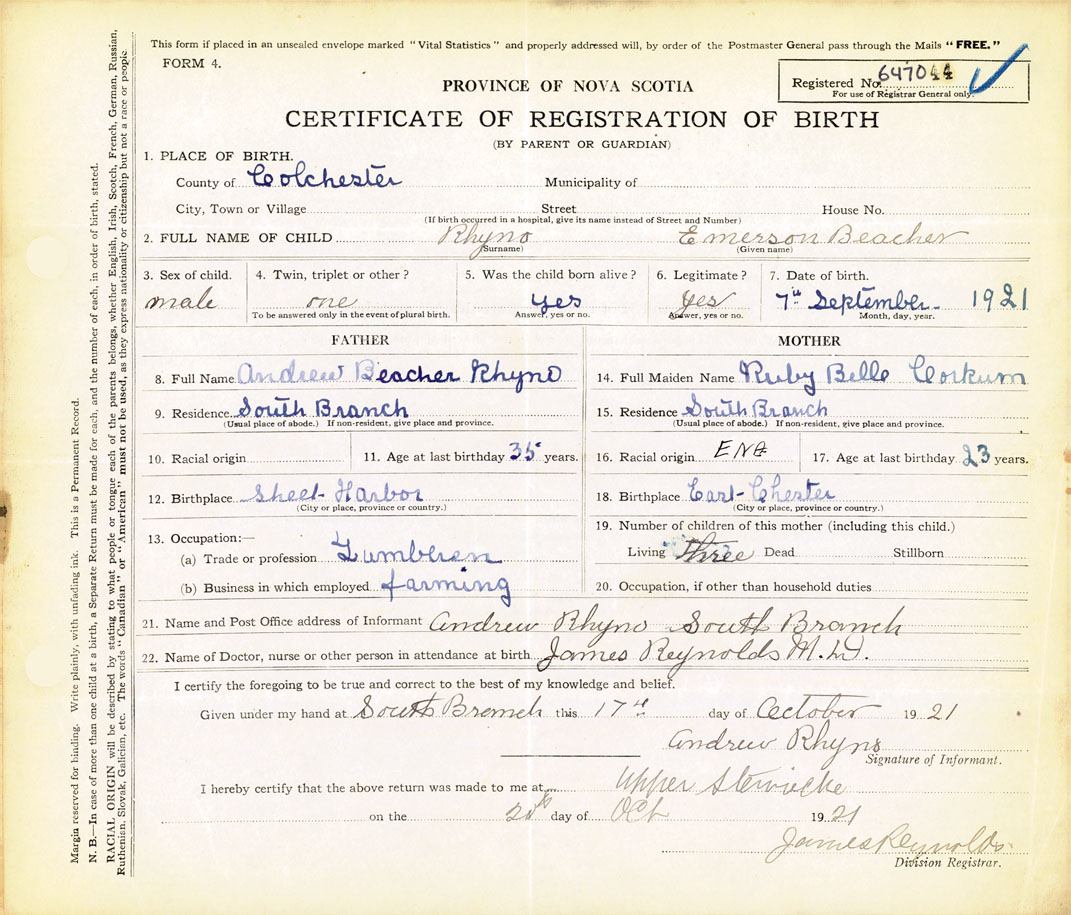 This form if placed in an unsealed envelope marked "Vital Statistics" and properly addressed will, by order of the Postmaster General pass through the Mails "FREE."
FORM 4.
Registered No. 647044
For use of Registrar General only.
PROVINCE OF NOVA SCOTIA
CERTIFICATE OF REGISTRATION OF BIRTH
(BY PARENT OR GUARDIAN)
1. PLACE OF BIRTH.
County of Colchester Municipality of
City, Town or Village Street House No.
(If birth occurred in a hospital, give its name instead of Street and Number)
2. FULL NAME OF CHILD Rhyno Emerson Beacher
(Surname) (Given name)
3. Sex of child. 4. Twin, triplet or other? 5. Was the child born alive? 6. Legitimate? 7. Date of birth.
male one yes yes 7th September 1921
To be answered only in the event of plural birth. Answer, yes or no. Answer, yes or no. Month, day, year.
FATHER MOTHER
8. Full Name Andrew Beacher Rhyno 14. Full Maiden Name Ruby Belle Corkum
9. Residence South Branch 15. Residence South Branch
(Usual place of abode.) If non-resident, give place and province. (Usual place of abode.) If non-resident, give place and province.
10. Racial origin 11. Age at last birthday 35 years. 16. Racial origin ENG 17. Age at last birthday 23 years.
12. Birthplace Sheet Harbor 18. Birthplace East Chester
(City or place, province or country.) (City or place, province or country.)
13. Occupation:— 19. Number of children of this mother (including this child.)
(a) Trade or profession Living three Dead Stillborn
(b) Business in which employed farming 20. Occupation, if other than household duties
21. Name and Post Office address of Informant Andrew Rhyno South Branch
22. Name of Doctor, nurse or other person in attendance at birth James Reynolds M.D.
I certify the foregoing to be true and correct to the best of my knowledge and belief.
Given under my hand at South Branch this 17th day of October 1921
Andrew Rhyno
Signature of Informant.
I hereby certify that the above return was made to me at Upper Stewiacke
on the 20th day of Oct 1921
James Reynolds
Division Registrar.
Margin reserved for binding. Write plainly, with unfading ink. This is a Permanent Record.
N. B.—In case of more than one child at a birth, a Separate Return must be made for each, and the number of each, in order of birth, stated.
RACIAL ORIGIN will be described by stating to what people or tongue each of the parents belongs, whether English, Irish, Scotch, French, German, Russian,
Ruthenian, Slovak, Galician, etc. The words "Canadian" or "American" must not be used, as they express nationality or citizenship but not a race or people